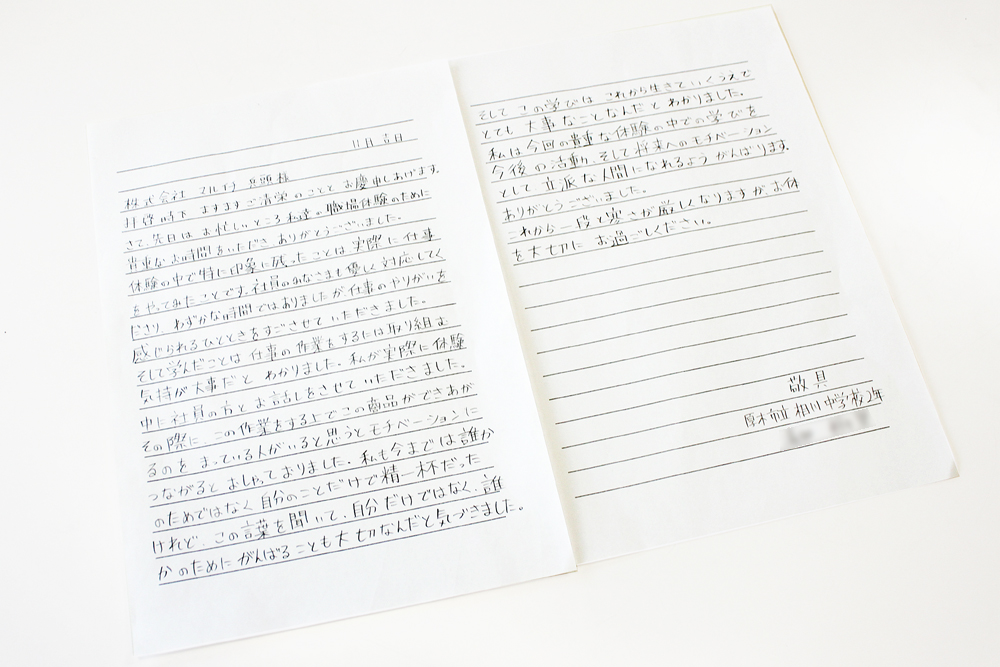 11月吉日
株式会社 マルイチ 兵頭様
拝啓 時下 ますます ご清栄のことと お慶び申しあげます。
さて、先日は お忙しいところ 私達の 職場体験のために
貴重なお時間をいただき ありがとうございました。
体験の中で特に印象に残ったことは 実際に 仕事
をやってみたことです。社員のみなさまし優しく対応してく
ださり わずかな時間ではありましたが 仕事のやりがいを
感じられるひとときをすごさせていただきました。
そして学んだことは 仕事の作業をするには取り組む
気持が大事だと わかりました。私が実際に体験
中に社員の方とお話しをさせていただきました。
その際に、この作業をする上でこの商品ができあが
るのを まっている人がいると思うとモチベーションに
つながると おしゃっておりました。私も今までは誰か
のためではなく 自分のことだけで精一杯だった
けれど、この言葉を聞いて、自分だけではなく、誰
かのためにがんばることも大切なんだと気づきました。
そして この学びは これから生きていくうえで
とても 大事なことなんだと わかりました。
私は今回の貴重な体験の中での学びを
今後の活動、そして将来へのモチベーション
として 立派な人間になれるよう がんばります。
ありがとうございました。
これから一段と寒さが厳しくなりますが お体
を大切に お過ごしください。
敬具
厚木市立 相川中学校2年